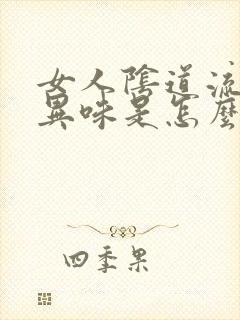 女人陰道流
異味是怎麼
四季果